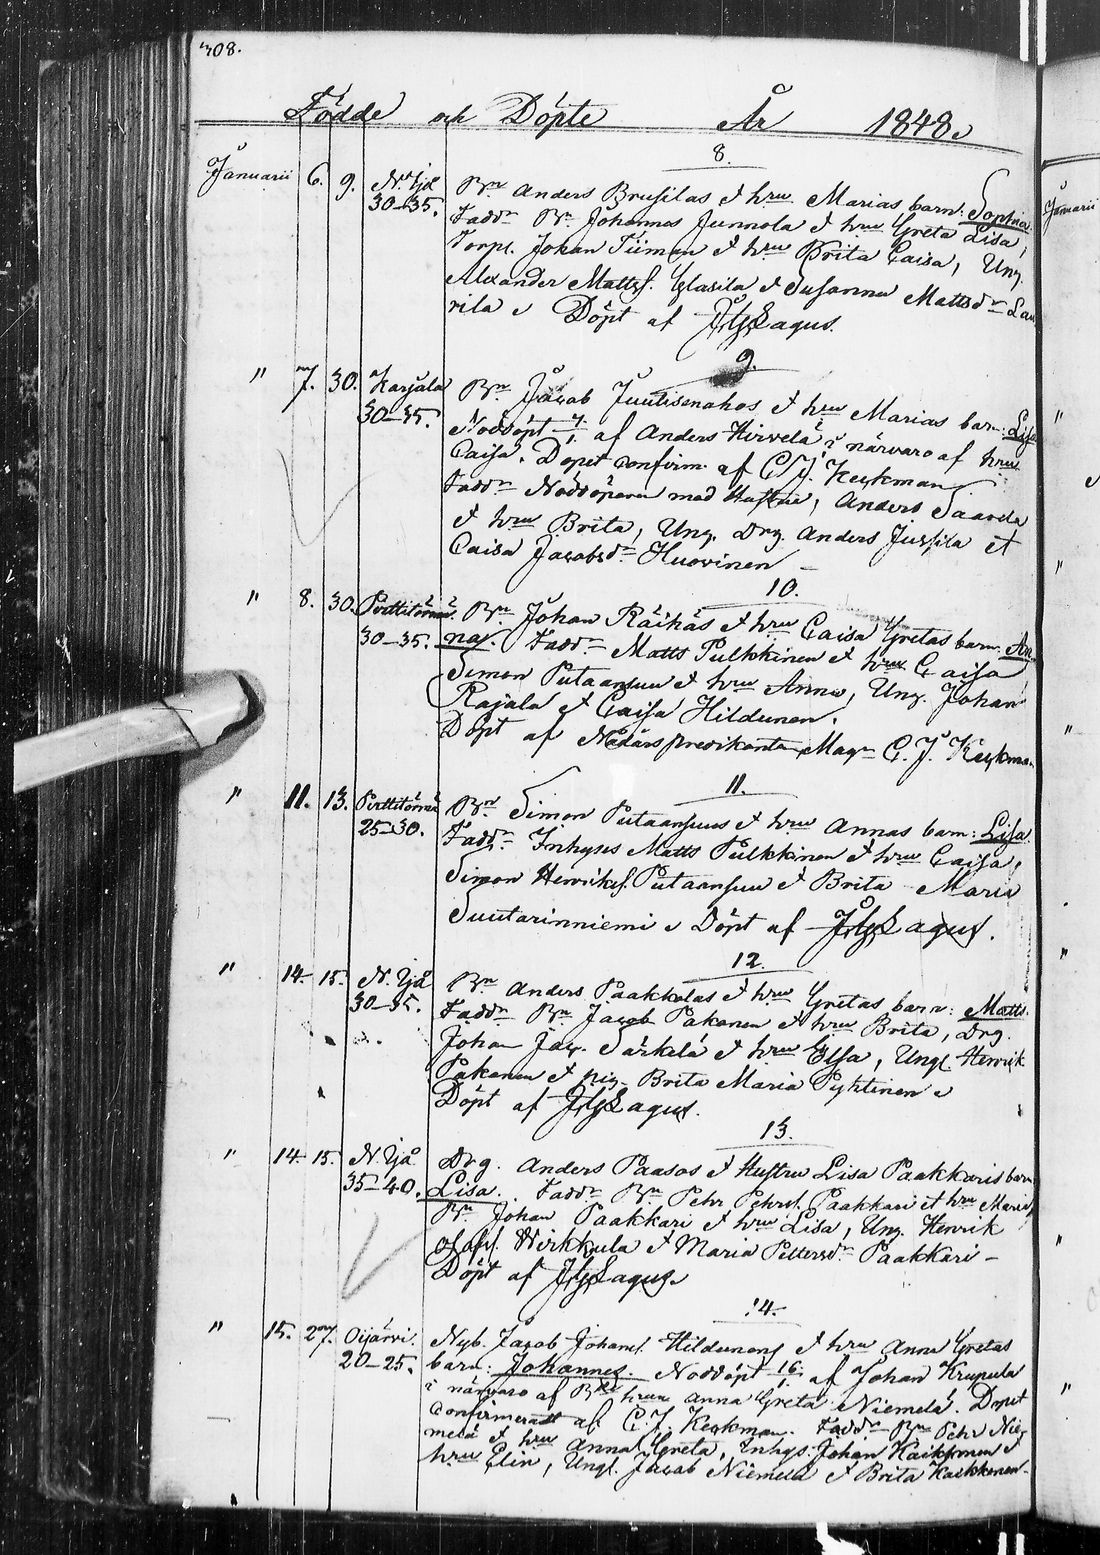 308.
Födde och Döpte År 1848.
8.
Januarii 6. 9. N. Ijå Bn Anders Brusilas & hru Marias barn: Sophia
30–35. Fadd. Bn Johannes Junnola & hru Greta Lisa,
Torp. Johan Tiimen & hru Brita Caisa, Ung.
Alexander Mattsf. Glasila & Susanna Mattsdr Lau
rila. Döpt af Lagus.
9.
" 7. 30. Karjala Bn Jacob Juutisenahos & hru Marias barn: Lisa
30–35. Noddöpt 7/1 af Anders Hirvelä i närvaro af hru
Caisa. Dopet confirm. af C. J. Keckman
Fadd. Noddöparen med Hustru, Anders Saarela
& hru Brita, Ung. Drg. Anders Jussila et
Caisa Jacobsdr Huovinen –
10.
" 8. 30. Pirttitörmä Bn Johan Räihäs & hru Caisa Gretas barn An
30–35. na. Fadd. Matts Pulkkinen & hru Caisa
Simon Putaansuu & hru Anna, Ung. Johan
Rajala & Caisa Hildunen.
Döpt af Nådårspredikanten Mag. C. J. Keckman
11.
" 11. 13. Pirttitörmä Bn Simon Putaansuus & hru Annas barn: Lisa
25–30. Fadd. Inhyses Matts Pulkkinen & hru Caisa,
Simon Henriksf. Putaansuu & Brita Maria
Suutarinniemi. Döpt af Lagus.
12.
" 14. 15. N. Ijå Bn Anders Paakkolas & hru Gretas barn: Matts
30–35. Fadd. Bn Jacob Pakanen & hru Brita, Drg.
Johan Jac. Särkelä & hru Elsa, Ungl. Henrik
Pakanen & pig. Brita Maria Pyhtinen.
Döpt af Lagus.
13.
" 14. 15. N. Ijå Drg. Anders Paasos & Hustru Lisa Paakkaris barn
35–40. Lisa. Fadd. Bn Pehr Pehrsf. Paakkari et hru Maria,
Bn Johan Paakkari & hru Lisa, Ung. Henrik
Olofsf. Wirkkula & Maria Pettersdr Paakkari –
Döpt af Lagus.
14.
" 15. 27. Oijärvi. Nyb. Jacob Johansf. Hildunens & hru Anna Gretas
20–25. barn: Johannes. Noddöpt 16/1 af Johan Krupula
i närvaro af hrun Anna Greta Niemelä. Dopet
Confirmeradt af C. J. Keckman. Fadd. Bn Pehr Nie
melä & hru Anna Greta, Inhys. Johan Kaikkonen &
hru Elin, Ungl. Jacob Niemelä & Brita Kaikkonen.
Januarii